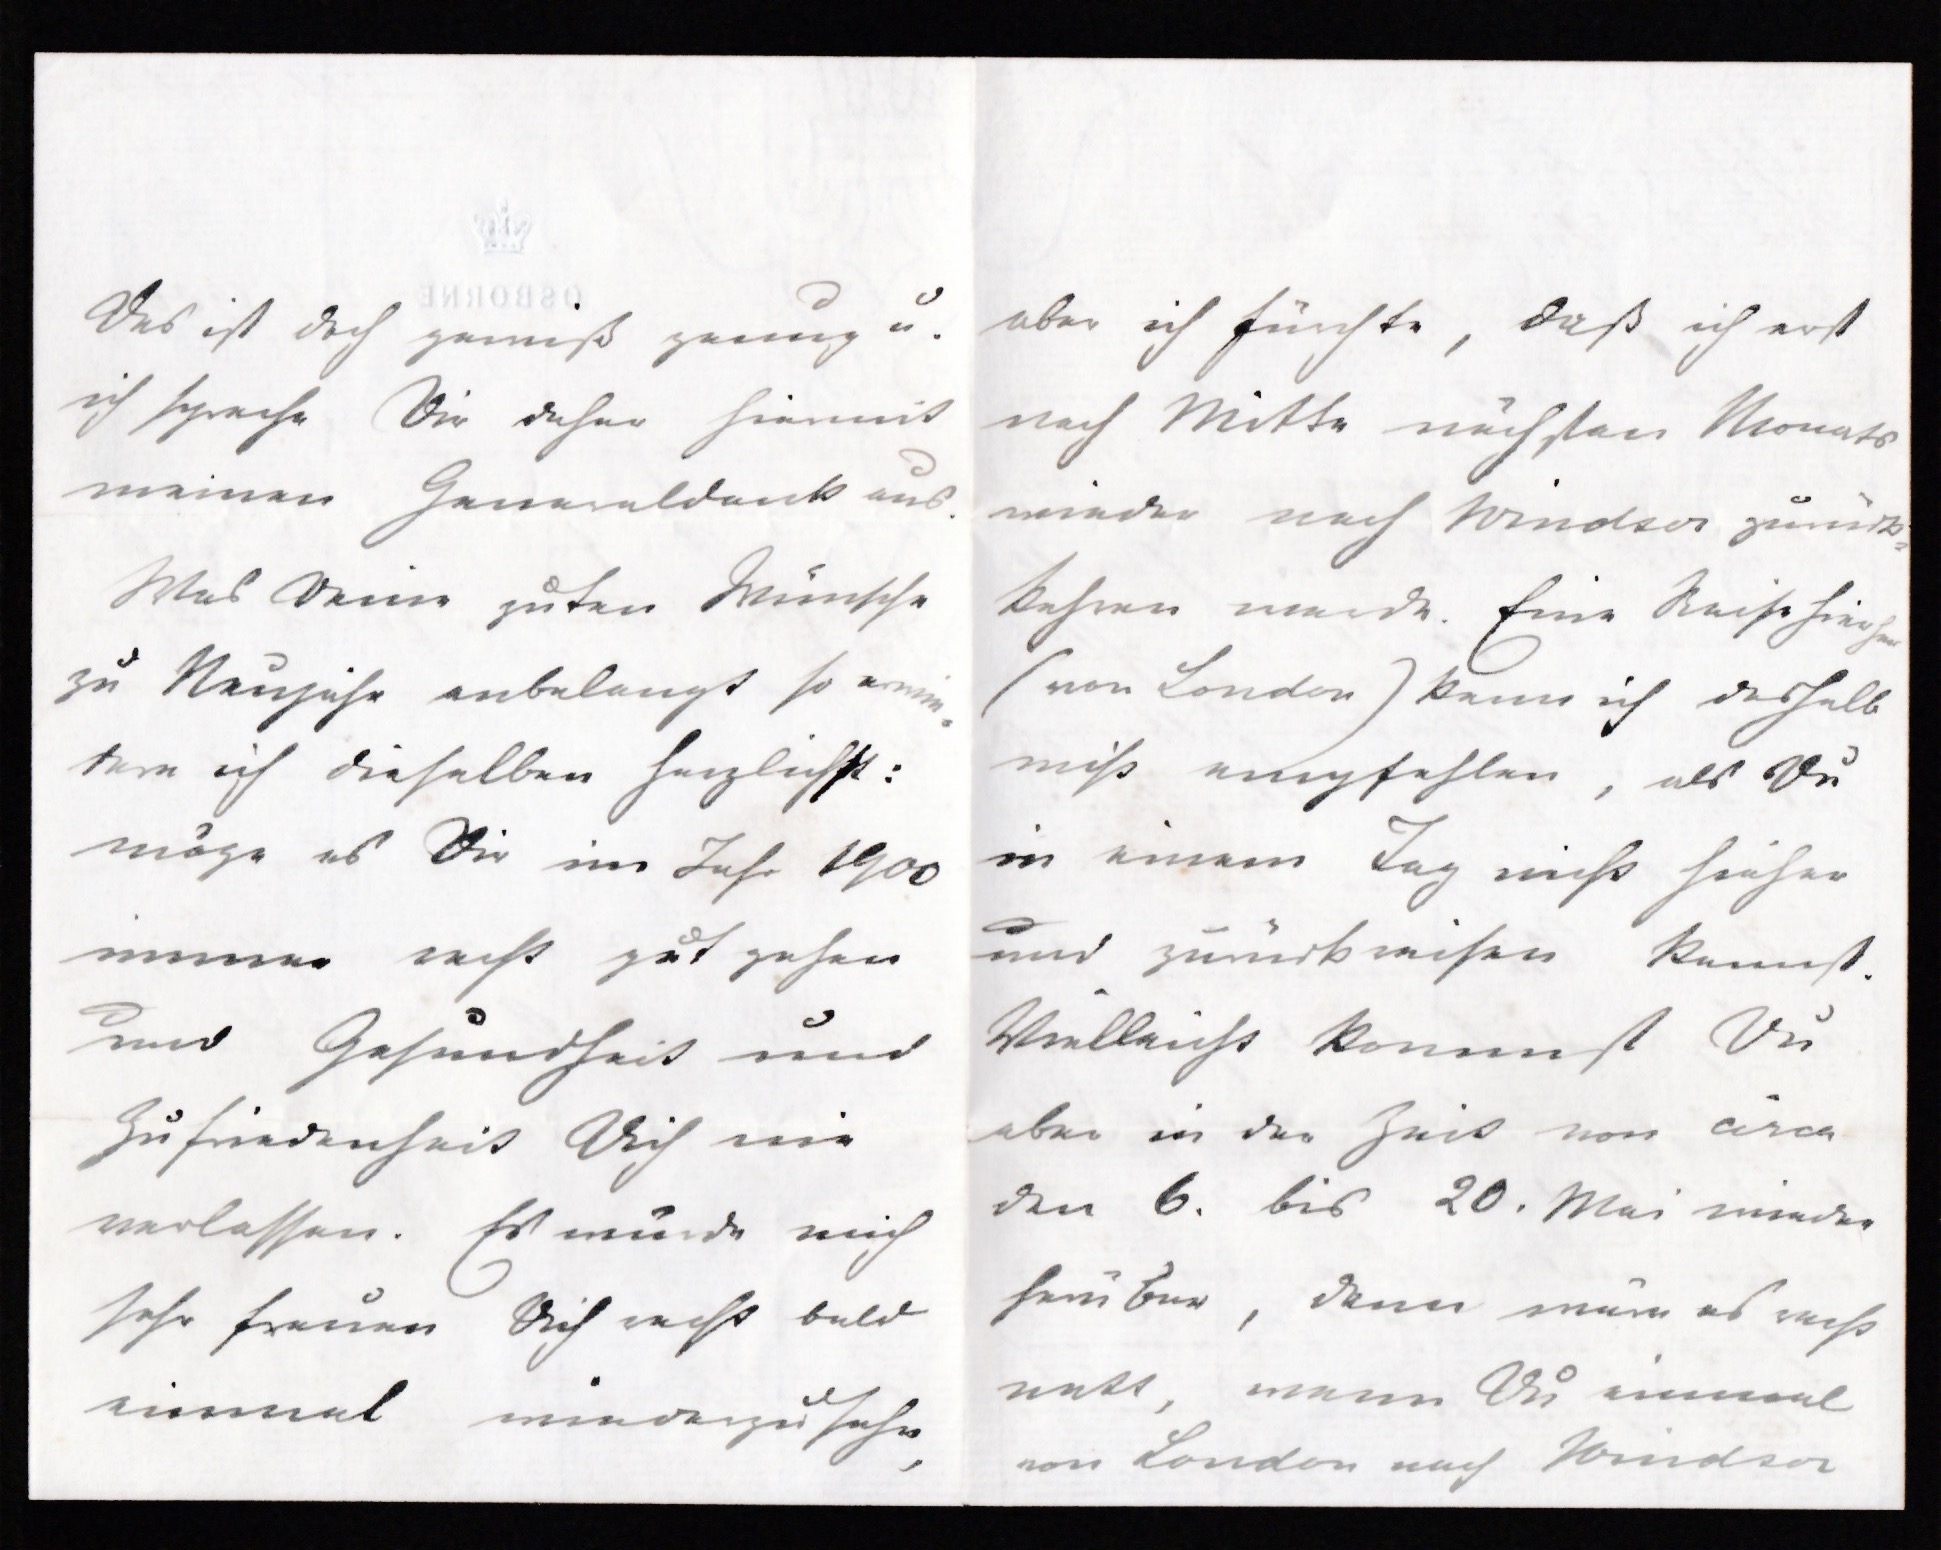 OSBORNE
Das ist doch gewiß genug u.
ich spreche Dir daher hiermit
meinen Generaldank aus.
Was Deine guten Wünsche
zu Neujahr anbelangt so erwie-
dere ich dieselben herzlichst:
möge es Dir im Jahr 1900
immer recht gut gehen
und Gesundheit und
Zufriedenheit Dich nie
verlassen. Es würde mich
sehr freuen Dich recht bald
einmal wiederzusehn,
aber ich fürchte, daß ich erst
nach Mitte nächsten Monats
wieder nach Windsor zurück-
kehren werde. Eine Reise hierher
(von London) kann ich deshalb
nicht empfehlen, als Du
in einem Tag nicht hieher
und zurückreisen kannst.
Vielleicht kommst Du
aber in der Zeit von circa
den 6. bis 20. Mai wieder
herüber, dann wäre es recht
nett, wenn Du einmal
von London nach Windsor